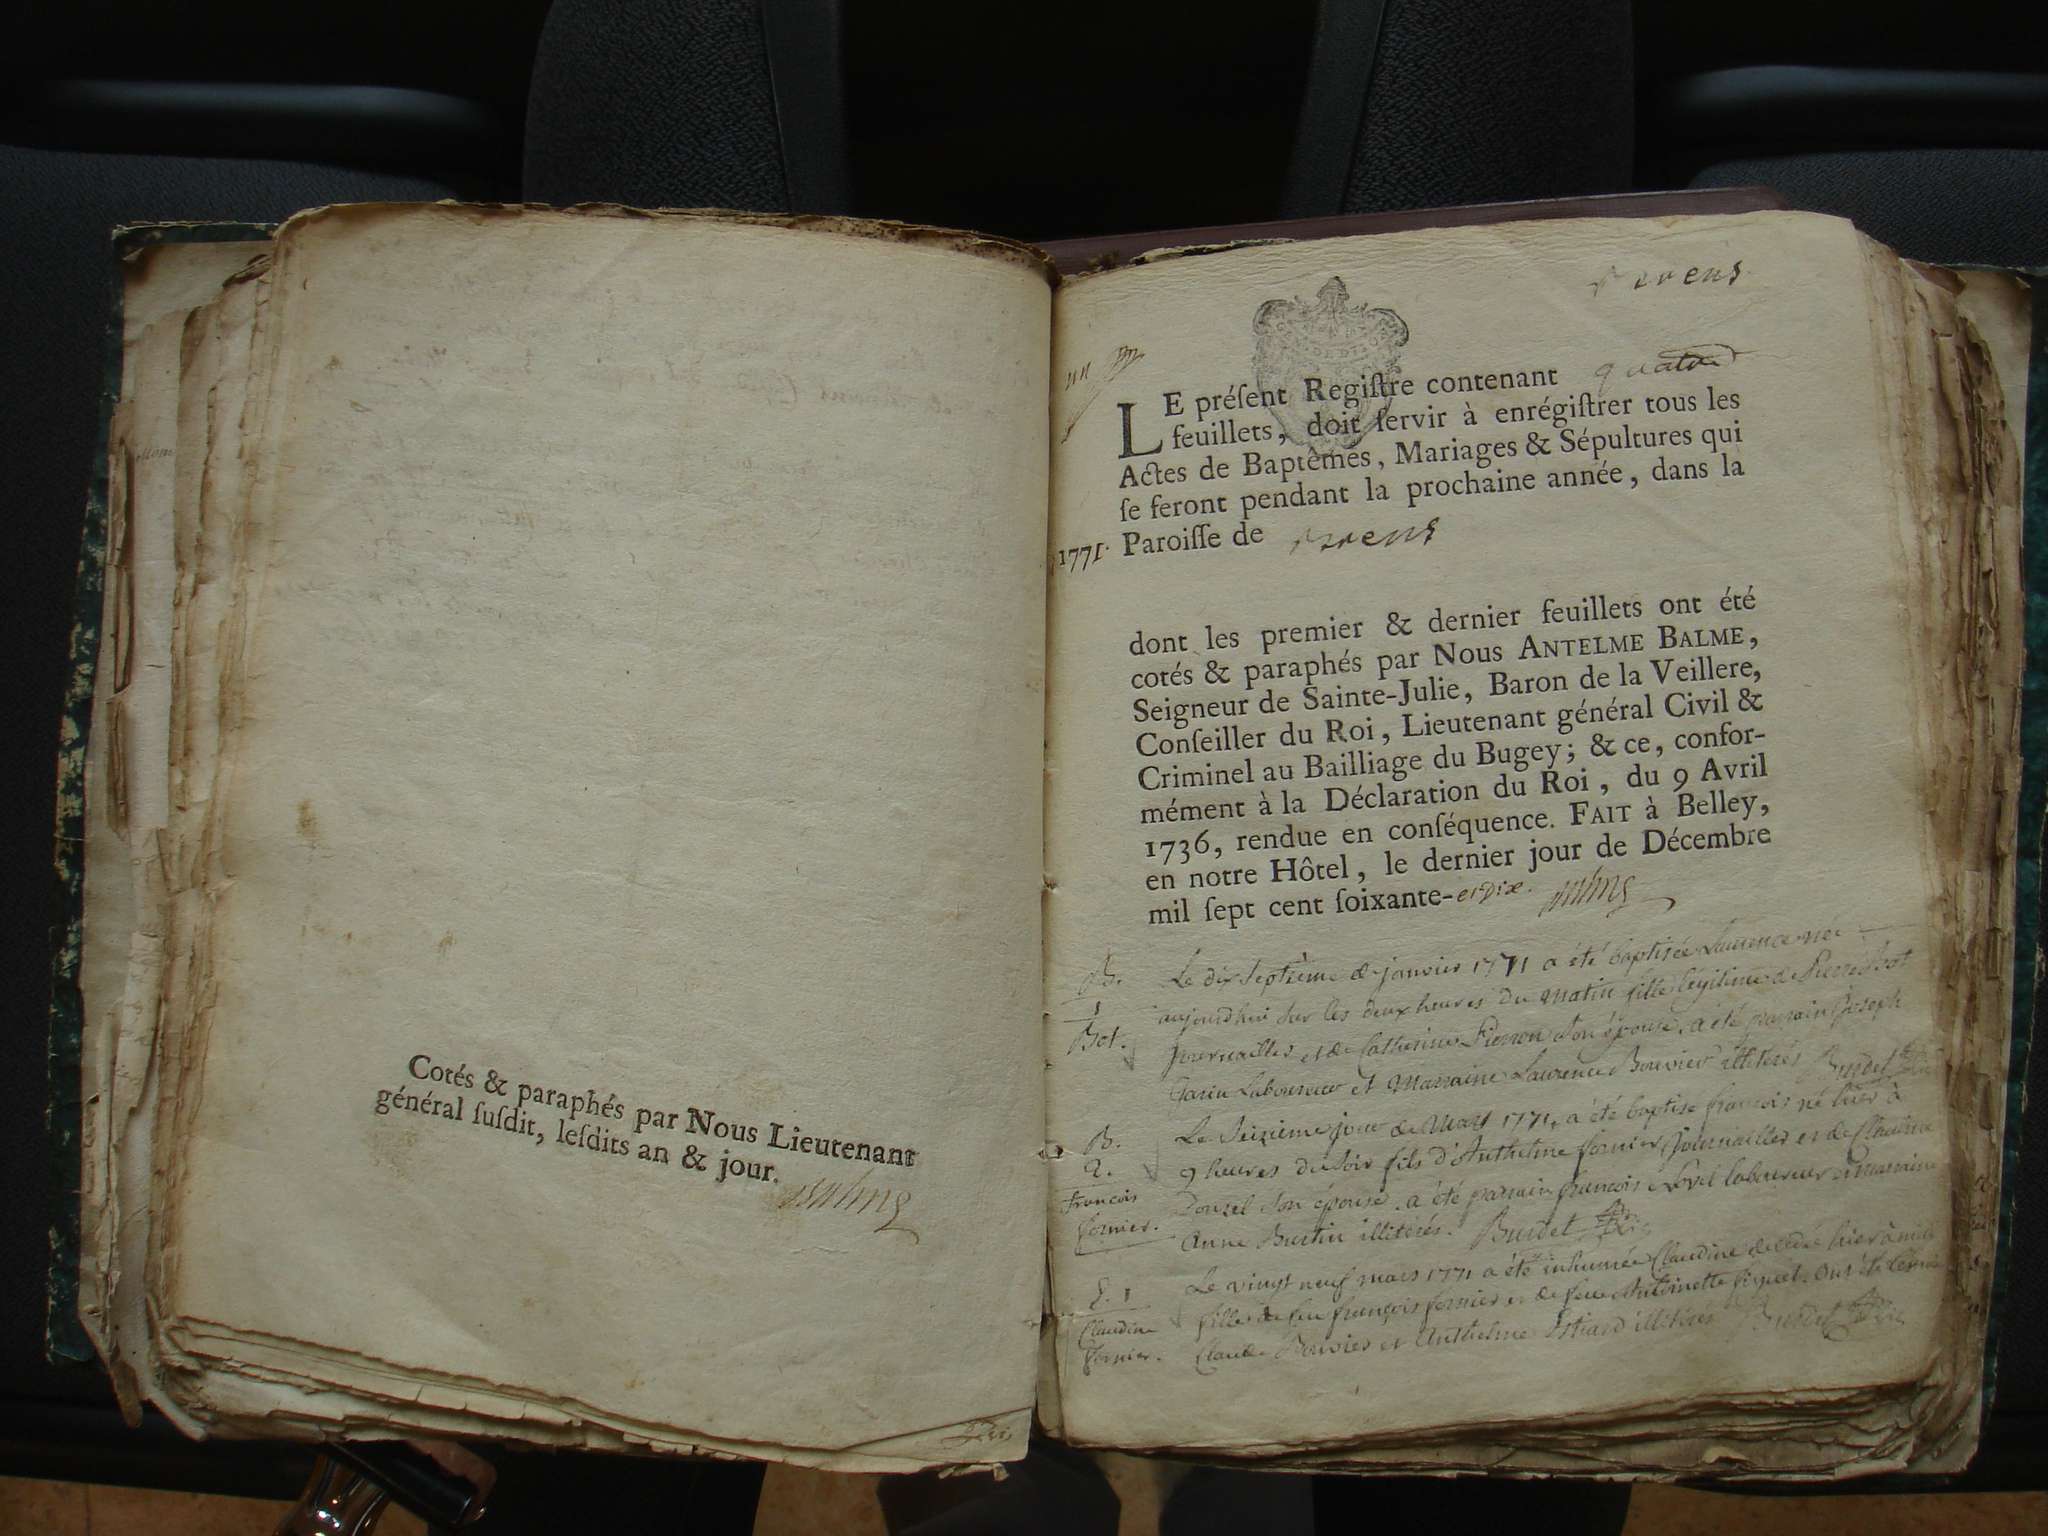 Cotés & paraphés par Nous Lieutenant
général ſuſdit, leſdits an & jour.
un
LE préſent Regiſtre contenant quatre
feuillets, doit ſervir à enrégiſtrer tous les
Actes de Baptêmes, Mariages & Sépultures qui
ſe feront pendant la prochaine année, dans la
1771. Paroiſſe de
dont les premier & dernier feuillets ont été
cotés & paraphés par Nous ANTELME BALME,
Seigneur de Sainte-Julie, Baron de la Veillere,
Conſeiller du Roi, Lieutenant général Civil &
Criminel au Bailliage du Bugey; & ce, confor-
mément à la Déclaration du Roi, du 9 Avril
1736, rendue en conſéquence. FAIT à Belley,
en notre Hôtel, le dernier jour de Décembre
mil ſept cent ſoixante-et dix.
B.
1
Bot.
Le dix Septieme de janvier 1771 a été baptisée Laurence née
aujourdhui sur les deux heures du matin fille légitime de Pierre Bot
journaillier et de Catherine son épouse. a été parrain joseph
Laboureur et marraine Laurence Bouvier illiterés Burdet
B.
2.
francois
fornier.
Le Seizieme jour de Mars 1771, a été baptisé francois né hier à
9 heures du soir fils d'Anthelme fornier journaillier et de Claudine
son épouse. a été parrain francois laboureur et marraine
Anne Burtin illiterés. Burdet
S. 1
Claudine
fornier.
Le vingt neuf mars 1771 a été inhumée Claudine decedée hier à midi
fille de feu françois fornier et de feue Antoinette ont été
Claude Bouvier et Anthelme illiterés Burdet